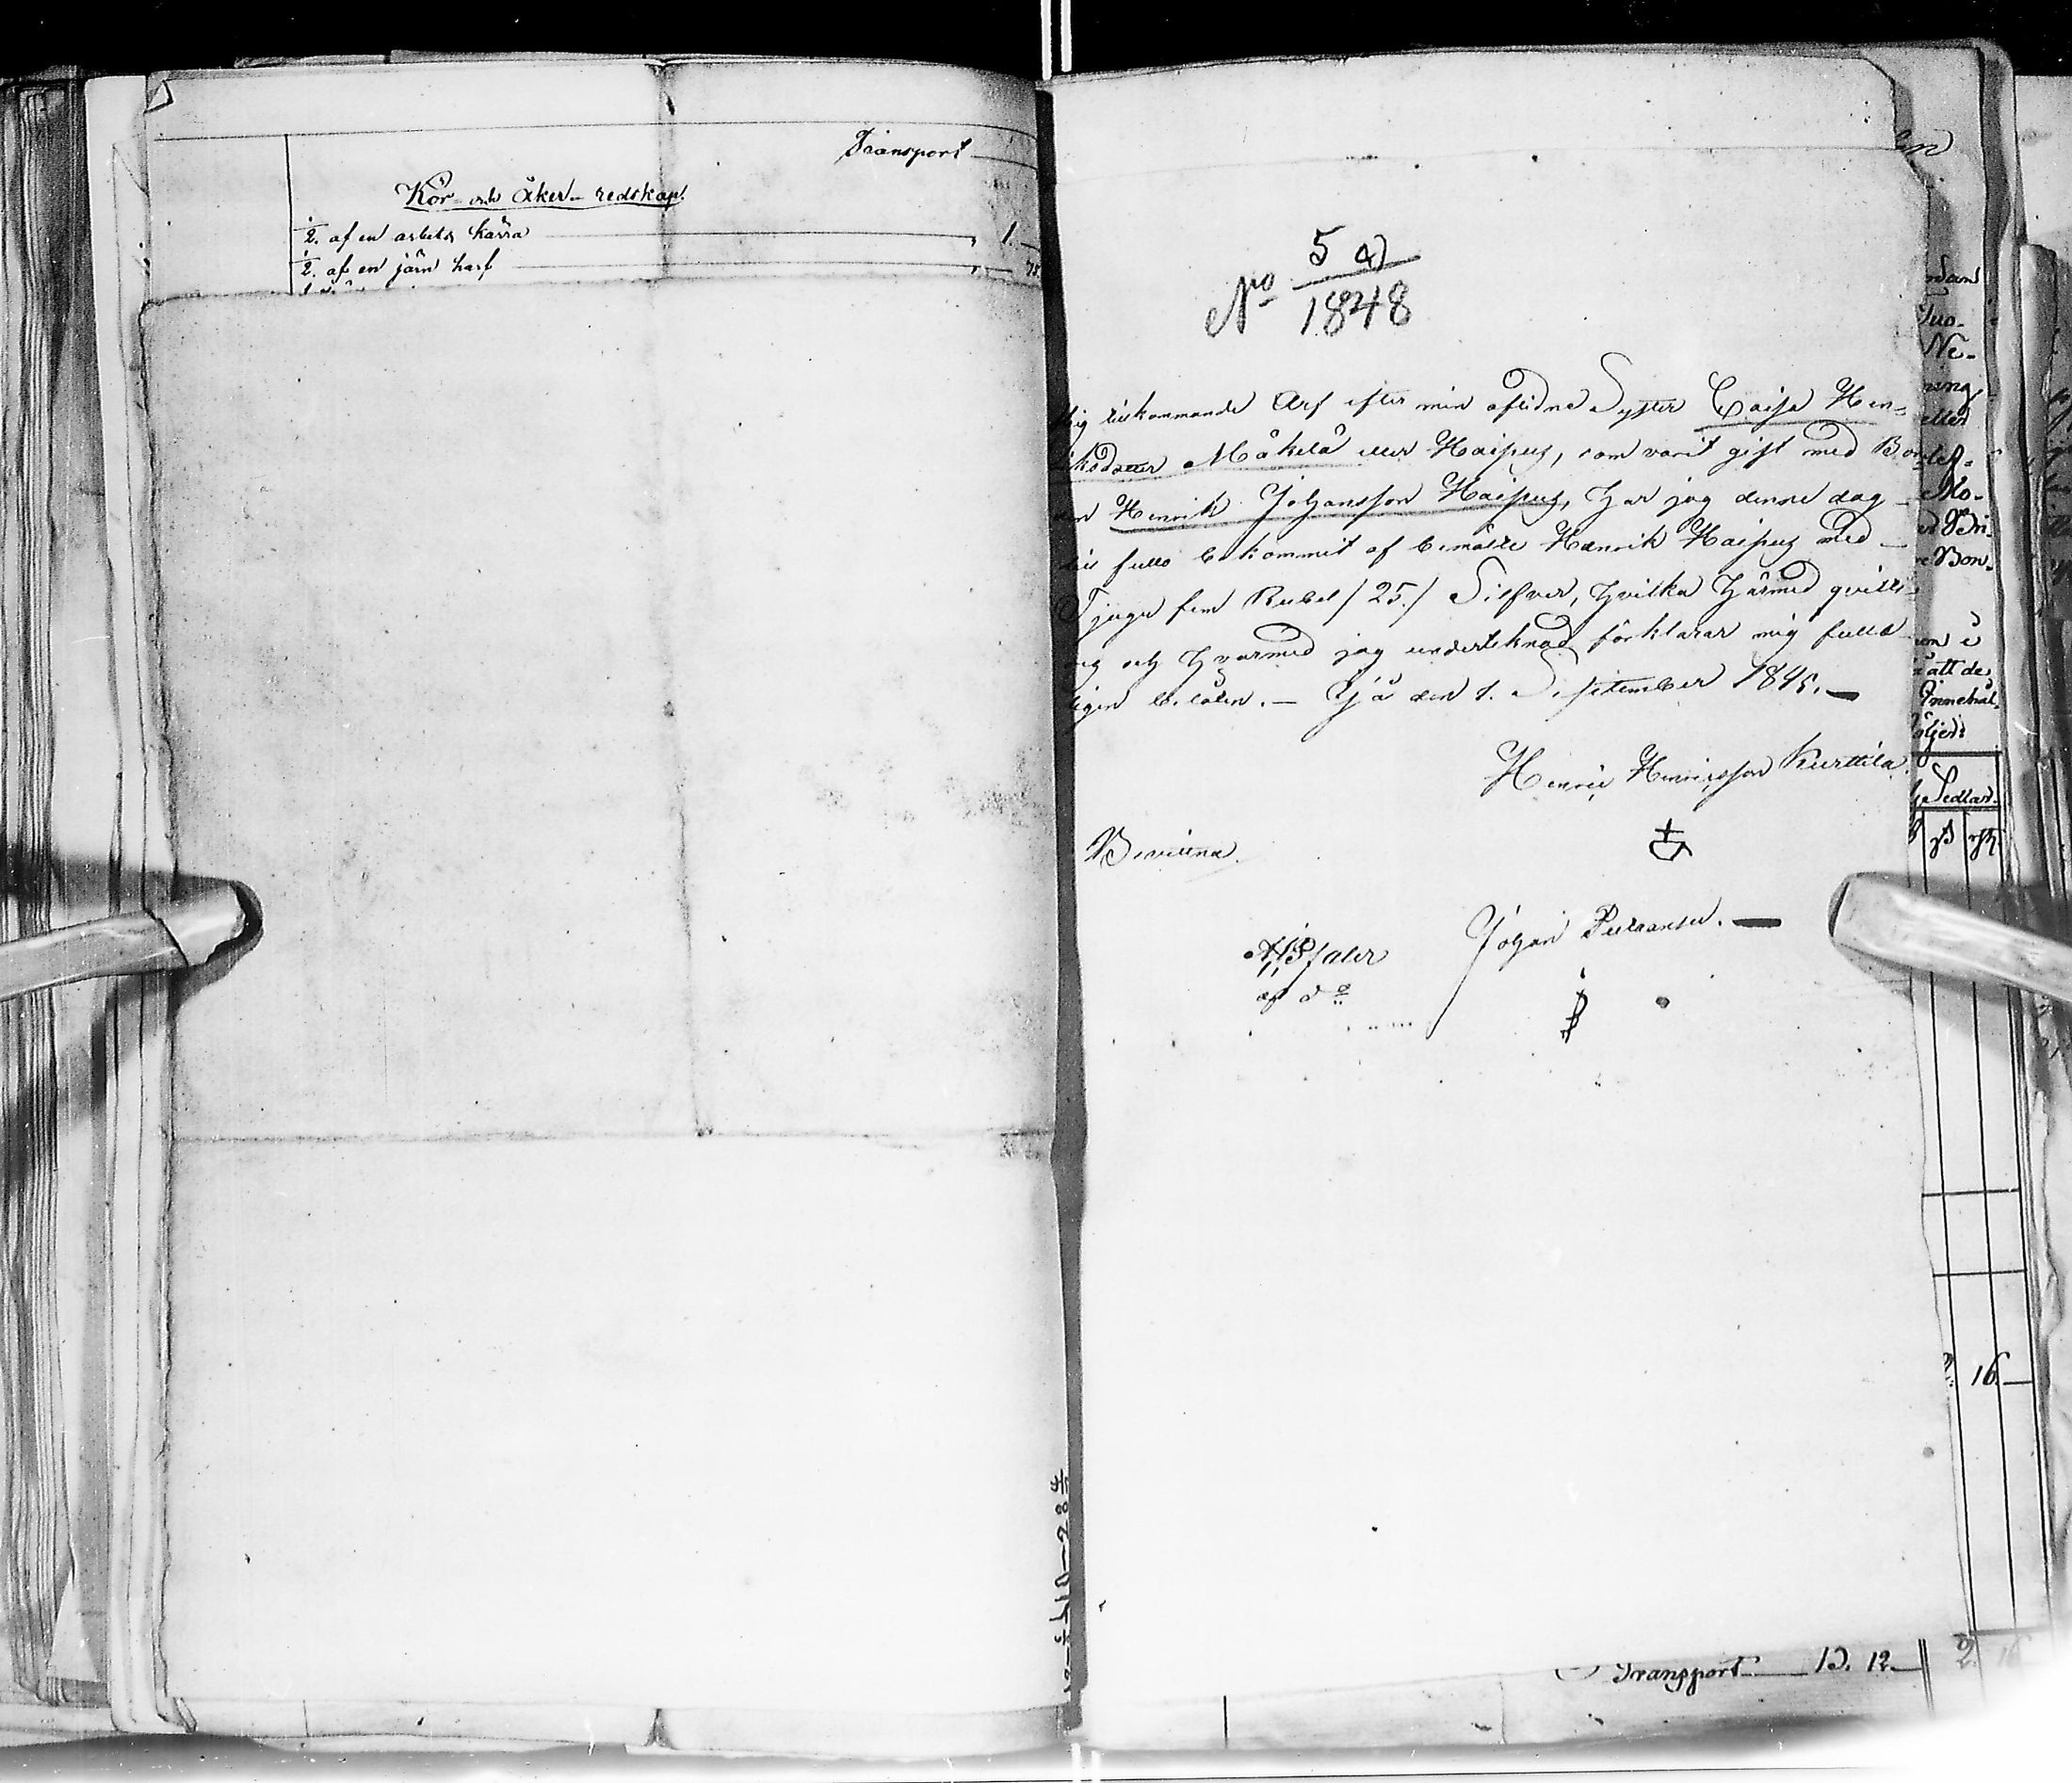 Transport
Kör och åker-redskap.
1/2. af en arbets kärra — " 1. —
1/2. af en järn harf — " — 75.
5 a)
No 1848
Mig tillkommande Arf efter min aflidne Syster Caisa Hen-
riksdotter Mäkelä eller Haipus, som varit gift med Bon-
den Henrik Johansson Haipus, har jag denne dag
till fullo bekommit af bemälte Henrik Haipus med
Tjugu fem Rubel /25./ Silfver, hvilka härmed qvitte-
ras och hvarmed jag undertecknad förklarar mig full-
ligen belåten. — Ijå den 1. September 1845. —
Henric Henricsson Kurttila
Bevittna.
Johan
af do
Transport — 13. 12. —
2. 16
16. —
en
Tuo-
Ne-
ning
eller
Mo-
Bon-
att de
Innehål-
Sedlar.